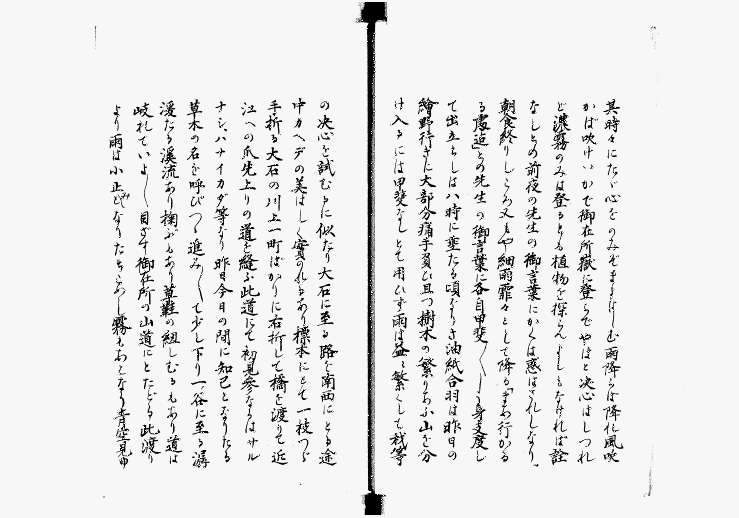 其時々にたゞ心をのみぞまよはしむ雨降らは降れ風吹
かば吹けいかで御在所嶽に登らでやはと决心はしつれ
ど濃霧のみは登るとも植物を探らんよしもなければ詮
なしとの前夜の先生の御言葉にかくは惑はされしなり、
朝食終りしころ又もや細雨霏々として降る「まあ行かる
る處迠」との先生の御言葉に各自甲斐〱しう身支度し
て出立ちしは八時に垂たる頃なりき油紙合羽は昨日の
繪野行きに大部分痛手負ひ且つ樹木の繁りあふ山を分
け入るには甲斐なしとて用ひず雨は益々繁くして我等
の决心を試むるに似たり大石に至る路を南西にとる途
中カヘデの美はしく實のれるあり標本にとて一枝づゝ
手折る大石の川上一町ばかりに右折して橋を渡りて近
江への爪先上りの道を縫ふ此道にて初見參なるはサル
ナシ、ハナイカダ等なり昨日今日の間に知己となりたる
草木の名を呼びつゝ進み〱て少し下り一谷に至る潺
湲たる溪流あり掬ぶもあり草鞋の紐しむるもあり道は
岐れていよ〱目ざす御在所の山道にとたどる此渡り
より雨は小止みとなりたるらし霧もあとなう青空見ゆ